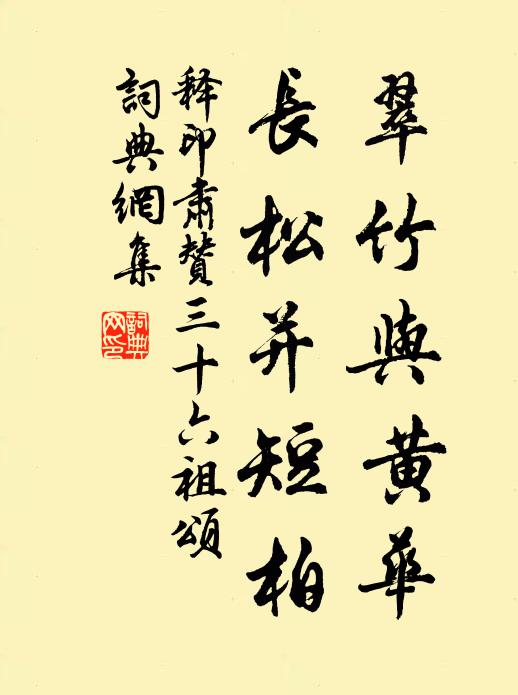 翠竹與黄華
長松并短柏
释印肅贊三十六祖頌
詞典網集
詞典网印